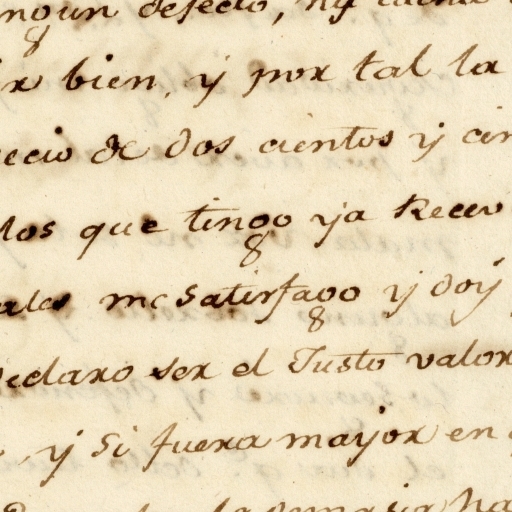 ingun defecto, ny
ir bien, y por tal la
ecio de dos cientos y cin
dos que tingo ya Recev
ales me Satisfago y doy
Declaro ser el Justo valor
y Si fuera mayor en